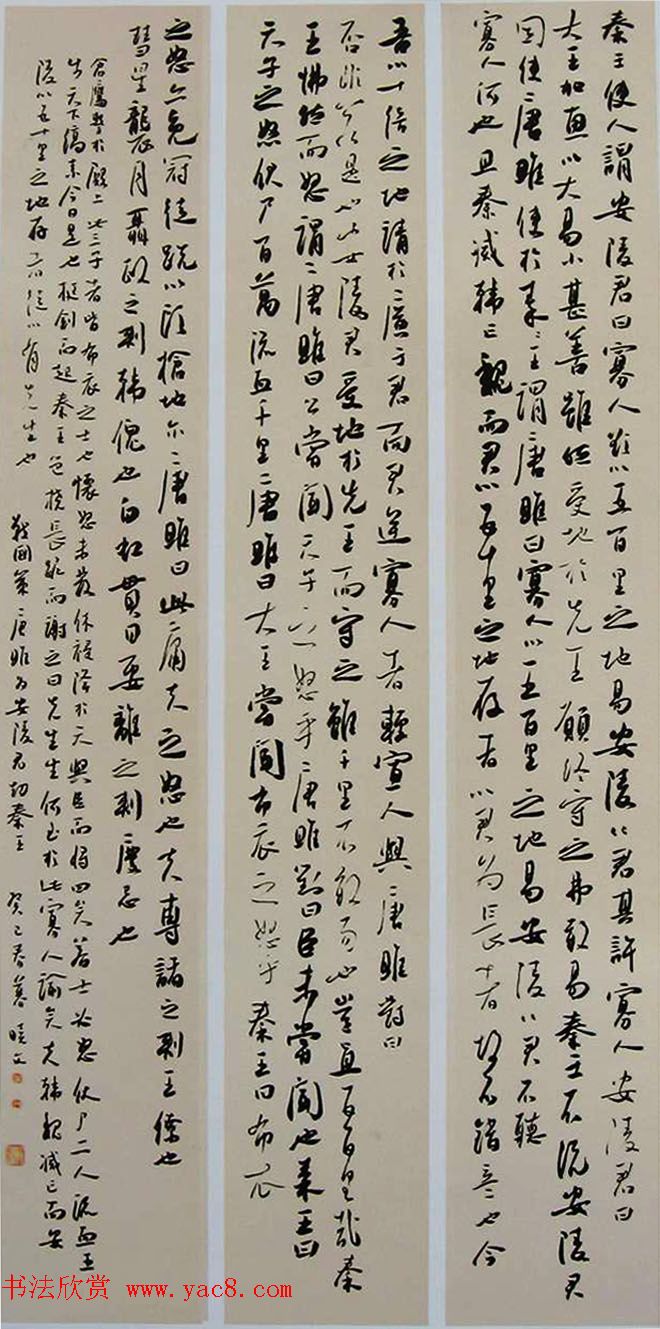 秦王使人謂安陵君曰寡人欲以五百里之地易安陵安陵君其許寡人安陵君曰
大王加惠以大易小甚善雖然受地於先王願終守之弗敢易秦王不悅安陵君
因使唐雎使於秦秦王謂唐雎曰寡人以五百里之地易安陵安陵君不聽
寡人何也且秦滅韓亡魏而君以五十里之地存者以君為長者故不錯意也今
吾以十倍之地請於廣於君而君逆寡人者輕寡人與唐雎對曰
否非若是也安陵君受地於先王而守之雖千里不敢易也豈直五百里哉秦
王怫然而怒謂唐雎曰公嘗聞天子之怒乎唐雎對曰臣未嘗聞也秦王曰
天子之怒伏尸百萬流血千里唐雎曰大王嘗聞布衣之怒乎秦王曰布衣
之怒亦免冠徒跣以頭搶地爾唐雎曰此庸夫之怒也夫專諸之刺王僚也
彗星襲月聶政之刺韓傀也白虹貫日要離之刺慶忌也
倉鷹擊於殿上此三子者皆布衣之士也懷怒未發休祲降於天與臣而將四矣若士必怒伏尸二人流血五
步天下縞素今日是也挺劍而起秦王色撓長跪而謝之曰先生坐何至於此寡人諭矣夫韓魏滅亡而安
陵以五十里之地存者徒以有先生也
戰國策唐雎為安陵君劫秦王 癸巳春暮曉文
书法欣赏 www.yac8.com